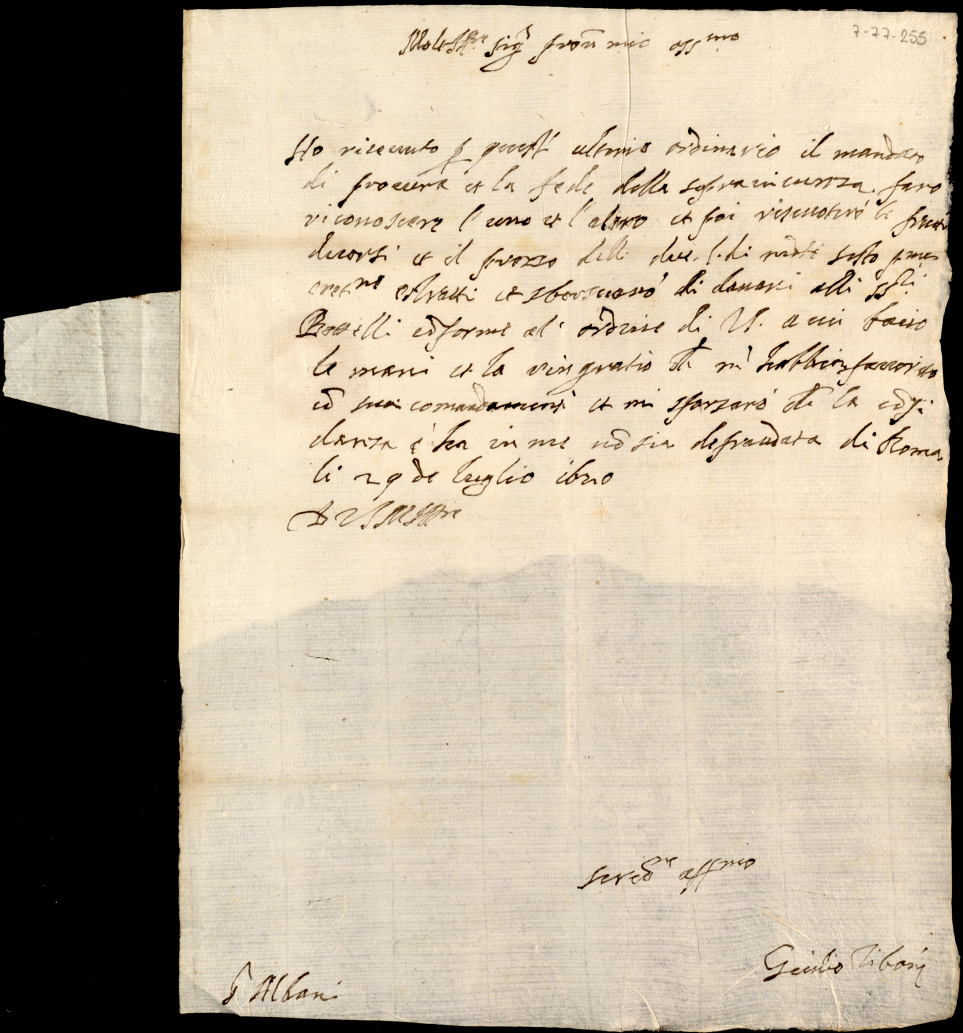 7-77-255
Molt' Ill.re sig.r pron mio oss.mo
Ho riceuto p quest' ultimo ordinario il mandato
di procura et la fede della soprauiuenza. farò
riconoscere l'uno et l'altro et poi riscuoterò li frutti
decorsi et il prezzo delli di monti
estratti et sborsarò li danari alli ss.ri
cōforme al' ordine di V.S. a cui bacio
le mani et la ringratio che m' habbia fauorito
cō suoi comandamenti et mi sforzarò che la cōfi
danza c' ha in me nō sia defraudata di Roma
li 29 de luglio 1620
D V S Molt' Ill.re
ser.re aff.mo
Giulio
S.r Albani